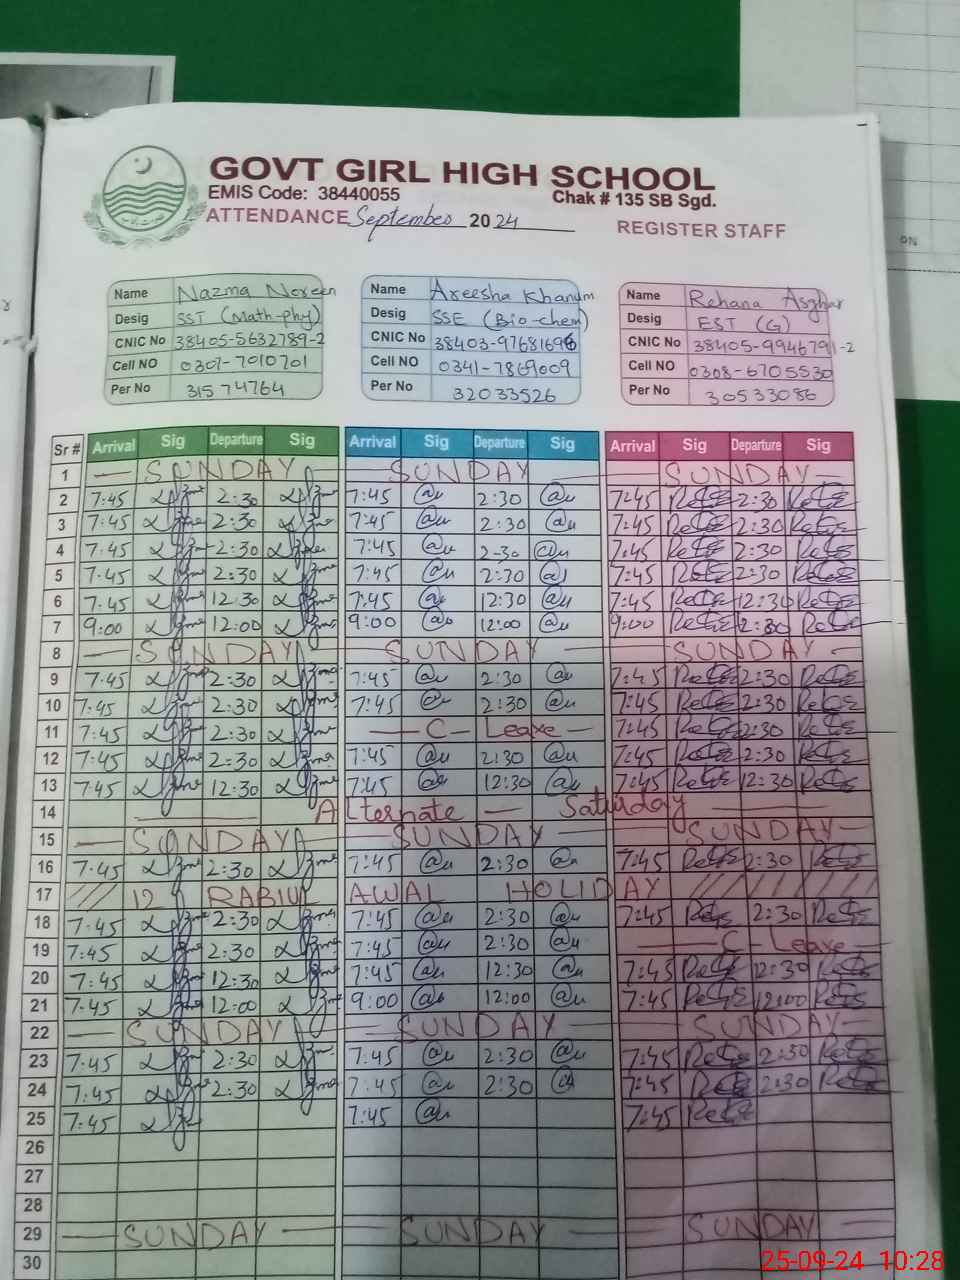 GOVT GIRL HIGH SCHOOL
EMIS Code: 38440055 Chak # 135 SB Sgd.
ATTENDANCE September 2024 REGISTER STAFF
Name Nazma Noreen Name Areesha Khanum Name Rehana Asghar
Desig SST (Math-phy) Desig SSE (Bio-chem) Desig EST (G)
CNIC No 38405-5632789-2 CNIC No CNIC No 38405-9946791-2
Cell NO 0307-7010701 Cell NO 0341-7869009 Cell NO 0308-6705530
Per No 31574764 Per No 32033526 Per No 30533086
Sr # Arrival Sig Departure Sig Arrival Sig Departure Sig Arrival Sig Departure Sig
1 SUNDAY SUNDAY SUNDAY
2 7:45 2:30 7:45 2:30 7:45 2:30
3 7:45 2:30 7:45 2:30 7:45 2:30
4 7:45 2:30 7:45 2-30 7:45 2:30
5 7:45 2:30 7:45 2:30 7:45 2:30
6 7:45 12:30 7:45 12:30 7:45 12:30
7 9:00 12:00 9:00 12:00 9:00
8 SUNDAY SUNDAY SUNDAY
9 7:45 2:30 7:45 2:30 7:45 2:30
10 7:45 2:30 7:45 2:30 7:45 2:30
11 7:45 2:30 C- Leave 7:45 2:30
12 7:45 2:30 7:45 2:30 7:45 2:30
13 7:45 12:30 7:45 12:30 7:45 12:30
14 Alternate Saturday
15 SUNDAY SUNDAY SUNDAY
16 7:45 2:30 7:45 2:30 7:45 2:30
17 12 RABIUL AWAL HOLIDAY
18 7:45 2:30 7:45 2:30 7:45 2:30
19 7:45 2:30 7:45 2:30 C- Leave
20 7:45 12:30 7:45 12:30 7:45 12:30
21 7:45 12:00 9:00 12:00 7:45 12:00
22 SUNDAY SUNDAY SUNDAY
23 7:45 2:30 7:45 2:30 7:45 2:30
24 7:45 2:30 7:45 2:30 7:45 2:30
25 7:45 7:45 7:45
26
27
28
29 SUNDAY SUNDAY SUNDAY
30
25-09-24 10:28